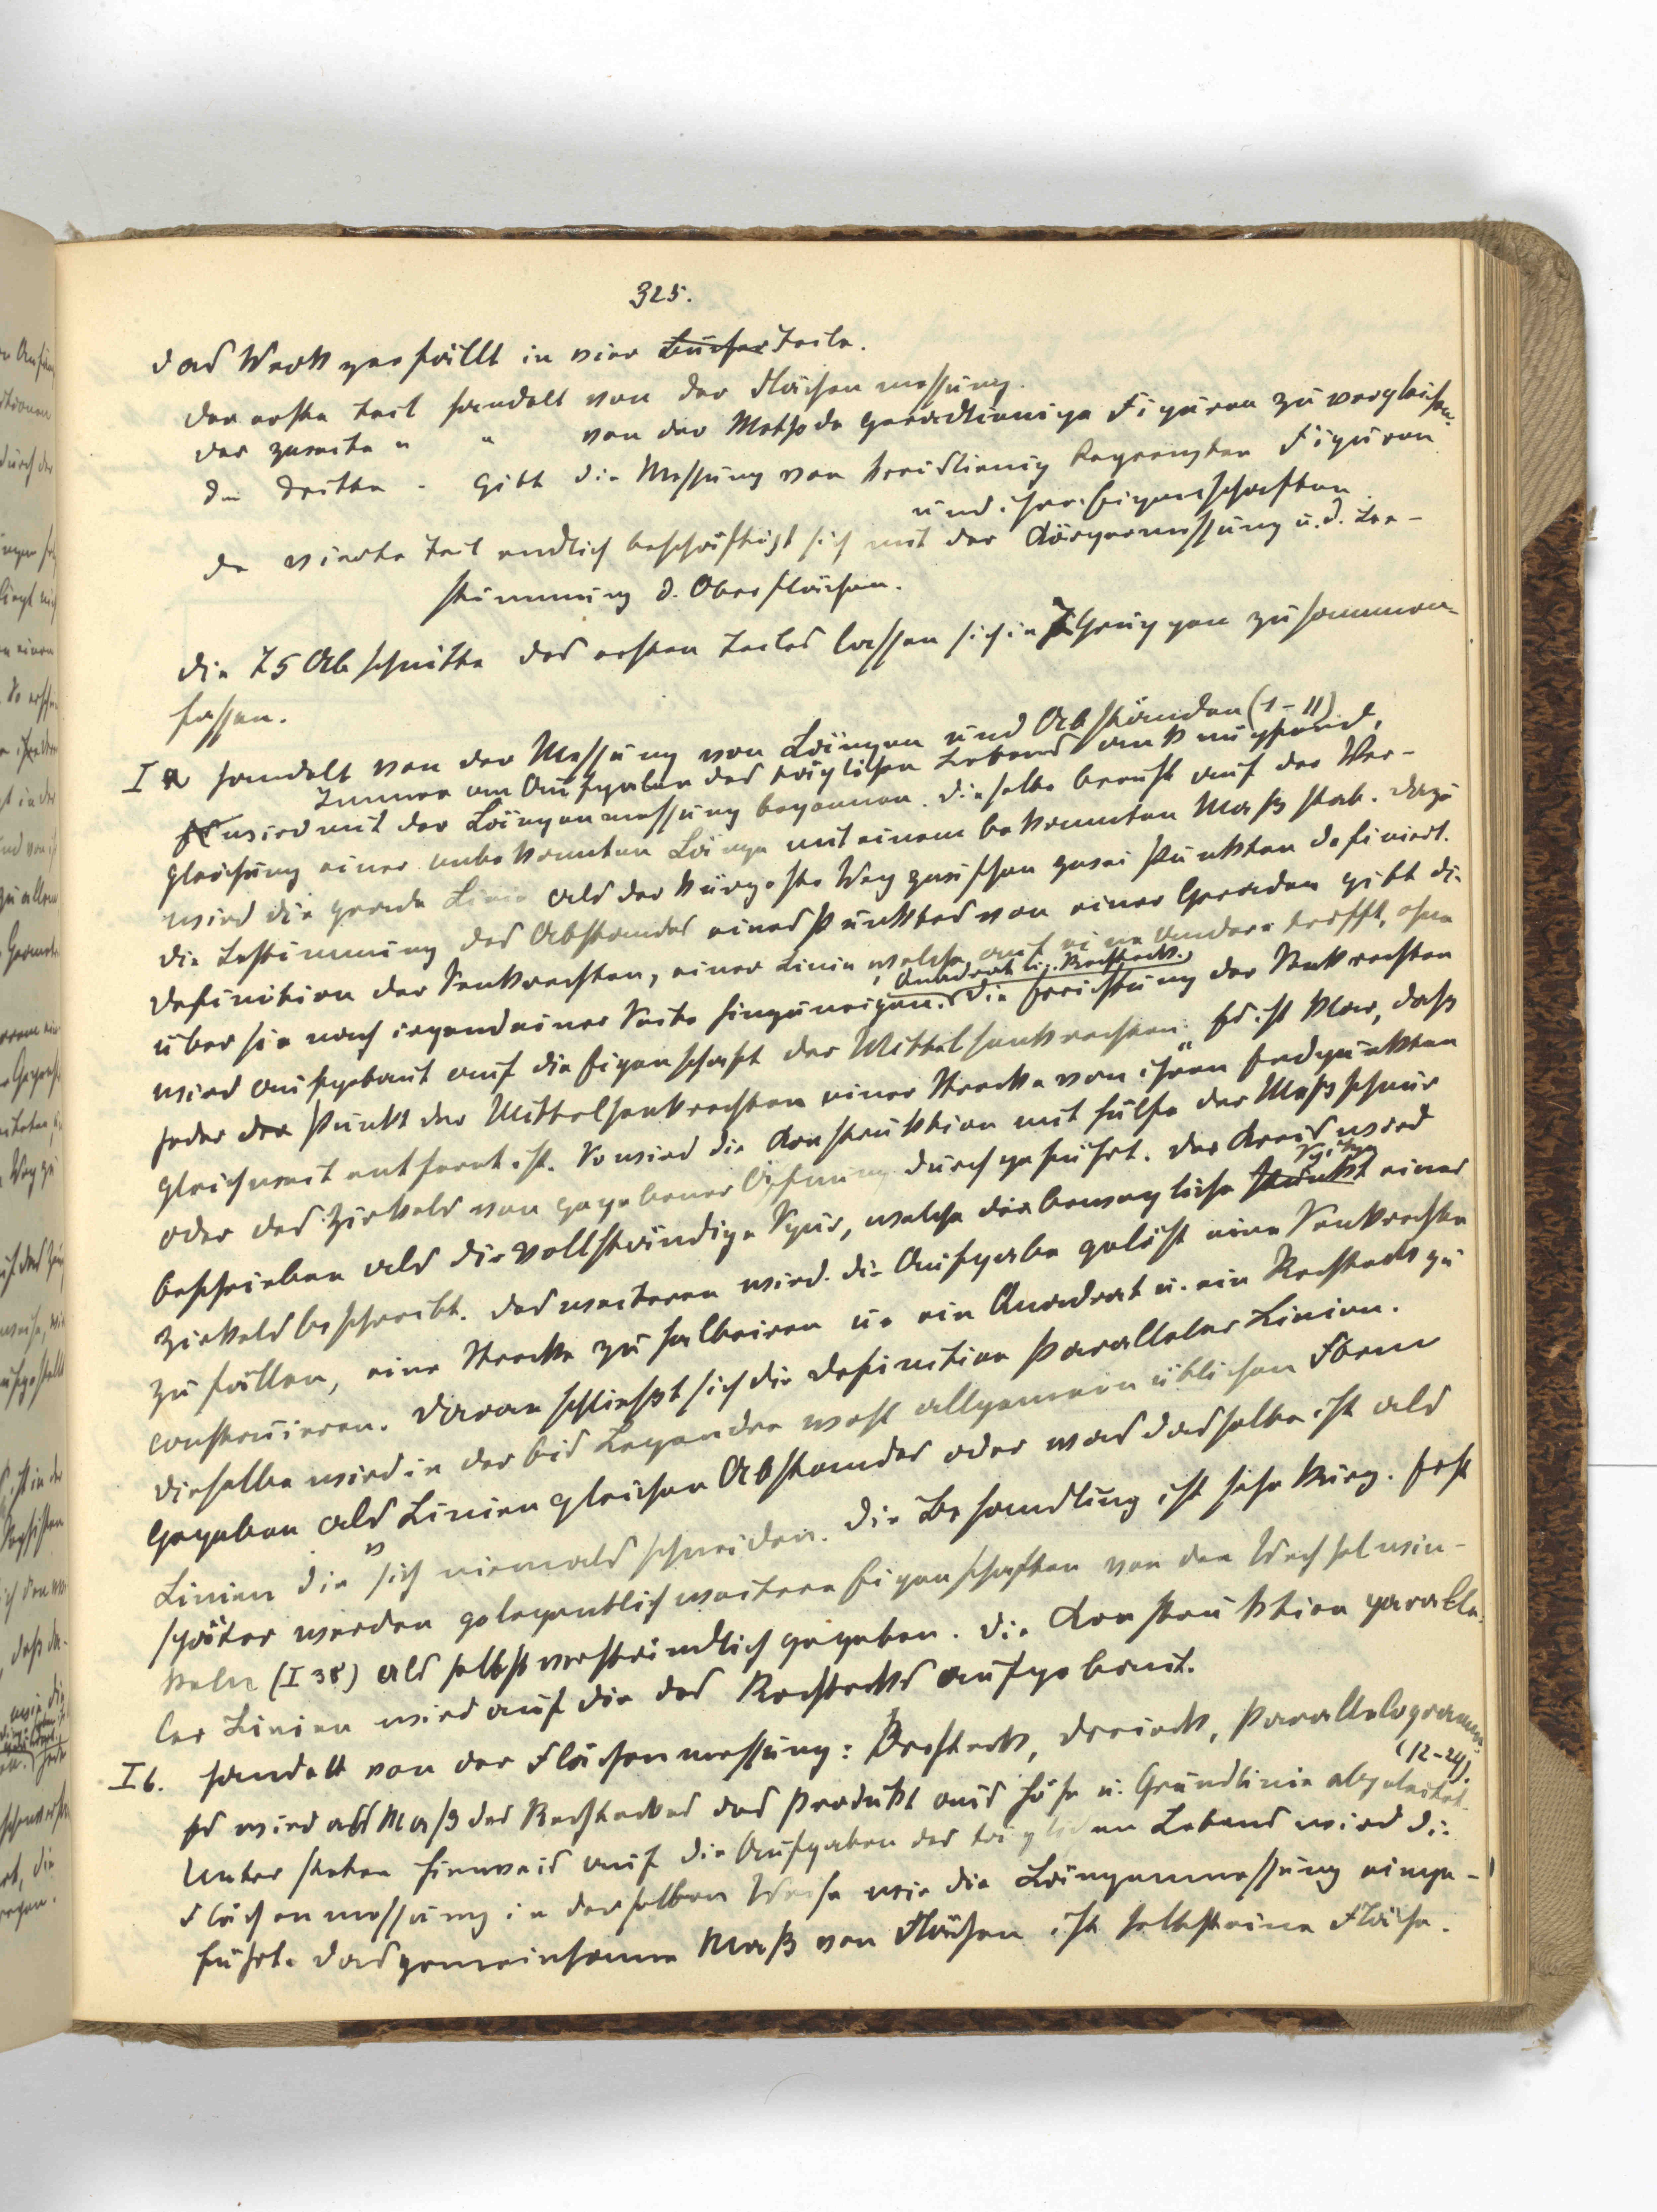 325.
Das Werk zerfällt in vier Bücher Teile.
Der erste Teil handelt von der Flächenmessung.
Der zweite " " von der Methode geradlinige Figuren zu vergleichen.
Der dritte " gibt die Messung von kreislinig begrenzten Figuren
und ihre Eigenschaften.
Der vierte Teil endlich beschäftigt sich mit der Körpermessung u. d. Be-
stimmung d. Oberflächen.
Die 75 Abschnitte des ersten Teiles lassen sich in 7 Gruppen zusammen-
fassen.
I a handelt von der Messung von Längen und Abständen (1-11)
Immer an Aufgaben des täglichen Lebens anknüpfend,
Es wird mit der Längenmessung begonnen. Dieselbe beruht auf der Ver-
gleichung einer unbekannten Länge mit einem bekannten Maßstab. Dazu
wird die gerade Linie als der kürzeste Weg zwischen zwei Punkten definiert.
Die Bestimmung des Abstandes eines Punktes von einer Geraden gibt die
Definition der Senkrechten, einer Linie, welche auf eine andere trifft, ohne
über sie nach irgendeiner Seite hinzuneigen. Die Errichtung der Senkrechten
Quadrat u. Rechteck.
wird aufgebaut auf die Eigenschaft der Mittelsenkrechten: "Es ist klar, daß
jeder der Punkt der Mittelsenkrechten einer Strecke von ihren Endpunkten
gleichweit entfernt ist. So wird die Konstruktion mit Hülfe der Meßschnur
oder des Zirkels von gegebener Öffnung durchgeführt. Der Kreis wird
beschrieben als die vollständige Spur, welche die bewegliche Punkt Spitze eines
Zirkels beschreibt. Des weiteren wird die Aufgabe gelöst eine Senkrechte
zu fällen, eine Strecke zu halbieren u. ein Quadrat u. ein Rechteck zu
construieren. Daran schließt sich die Definition paralleler Linien.
Dieselbe wird in der bis Legendre wohl allgemein üblichen Form
gegeben als Linien gleichen Abstandes oder was dasselbe ist als
Linien die "sich niemals schneiden. Die Behandlung ist sehr kurz. Erst
später werden gelegentlich weitere Eigenschaften von den Wechselwin-
keln (I 38) als selbstverständlich gegeben. Die Konstruktion paralle-
ler Linien wird auf die des Rechtecks aufgebaut.
I b. handelt von der Flächenmessung: Rechteck, Dreieck, Parallelogramm.
(12-24).
Es wird als Maß des Rechteckes das Produkt aus Höhe u. Grundlinie abgeleitet.
Unter stetem Hinweis auf die Aufgaben des täglichen Lebens wird die
Flächenmessung in derselben Weise wie die Längenmessung einge-
führt. Das gemeinsame Maß von Flächen ist selbst eine Fläche.